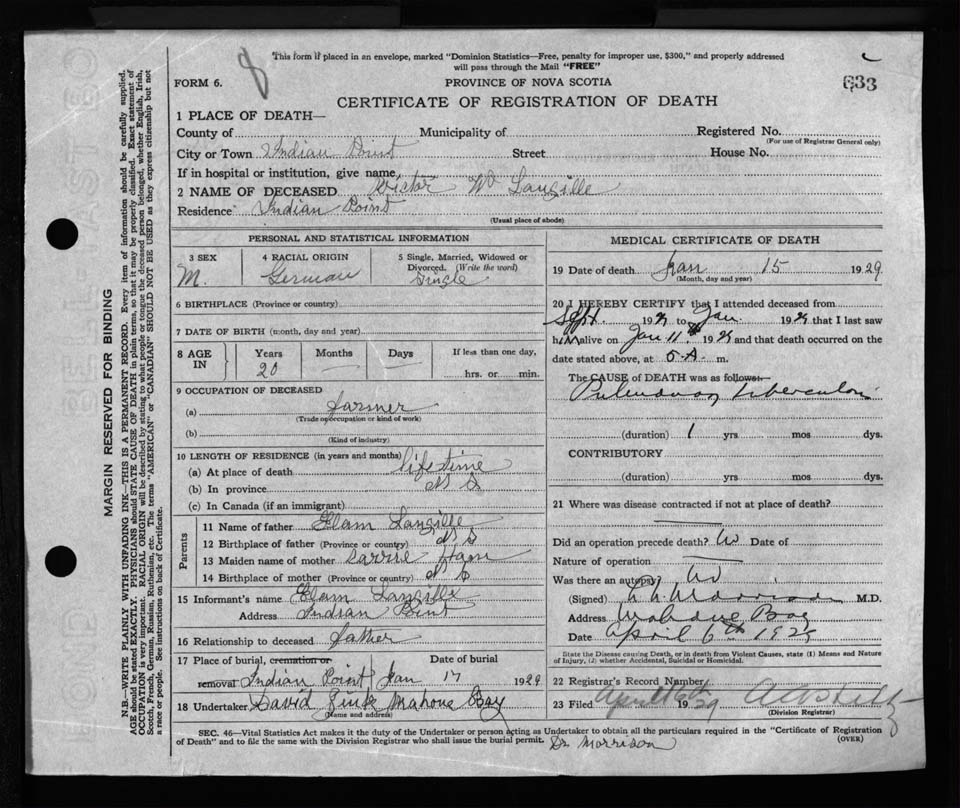 8
This form if placed in an envelope, marked "Dominion Statistics—Free, penalty for improper use, $300," and properly addressed
will pass through the Mail "FREE"
FORM 6.
PROVINCE OF NOVA SCOTIA
633
CERTIFICATE OF REGISTRATION OF DEATH
1 PLACE OF DEATH—
County of Municipality of Registered No.
(For use of Registrar General only)
City or Town Indian Point Street House No.
If in hospital or institution, give name
2 NAME OF DECEASED Victor Wm Langille
Residence Indian Point
(Usual place of abode)
PERSONAL AND STATISTICAL INFORMATION
3 SEX 4 RACIAL ORIGIN 5 Single, Married, Widowed or
Divorced. (Write the word)
M. German Single
6 BIRTHPLACE (Province or country)
7 DATE OF BIRTH (month, day and year)
8 AGE IN Years Months Days If less than one day,
20 — — hrs. or min.
9 OCCUPATION OF DECEASED
(a) farmer
(Trade occupation or kind of work)
(b)
(Kind of industry)
10 LENGTH OF RESIDENCE (in years and months)
(a) At place of death lifetime
(b) In province N S
(c) In Canada (if an immigrant)
Parents
11 Name of father Elam Langille
12 Birthplace of father (Province or country) N S
13 Maiden name of mother Carrie Ham
14 Birthplace of mother (Province or country) N S
15 Informant's name Elam Langille
Address Indian Point
16 Relationship to deceased father
17 Place of burial, cremation or Date of burial
removal Indian Point Jan 17 1929
18 Undertaker David Zink Mahone Bay
(Name and address)
MEDICAL CERTIFICATE OF DEATH
19 Date of death Jan 15 1929
(Month, day and year)
20 I HEREBY CERTIFY that I attended deceased from
Sept. 19 to Jan 19 that I last saw
him alive on Jan 11th 19 and that death occurred on the
date stated above, at 5 A. m.
The CAUSE of DEATH was as follows:—
Pulmonary tuberculosis
(duration) 1 yrs mos dys.
CONTRIBUTORY
(duration) yrs mos dys.
21 Where was disease contracted if not at place of death?
—
Did an operation precede death? No Date of
Nature of operation —
Was there an autopsy? No
(Signed) Morrison M.D.
Address Mahone Bay
Date April 6th
State the Disease causing Death, or in death from Violent Causes, state (1) Means and Nature
of Injury, (2) whether Accidental, Suicidal or Homicidal.
22 Registrar's Record Number
23 Filed April 16th 1929
(Division Registrar)
SEC. 46—Vital Statistics Act makes it the duty of the Undertaker or person acting as Undertaker to obtain all the particulars required in the "Certificate of Registration
of Death" and to file the same with the Division Registrar who shall issue the burial permit. (OVER)
Dr Morrison
MARGIN RESERVED FOR BINDING
N.B.—WRITE PLAINLY WITH UNFADING INK—THIS IS A PERMANENT RECORD. Every item of information should be carefully supplied.
AGE should be stated EXACTLY. PHYSICIANS should STATE CAUSE OF DEATH in plain terms, so that it may be properly classified. Exact statement of
OCCUPATION is very important. RACIAL ORIGIN will be described by stating to what people or tongue the deceased person belonged, whether English, Irish,
Scotch, French, German, Russian, Ruthenian, etc. The terms "AMERICAN" or "CANADIAN" SHOULD NOT BE USED as they express citizenship but not
a race or people. See instructions on back of Certificate.